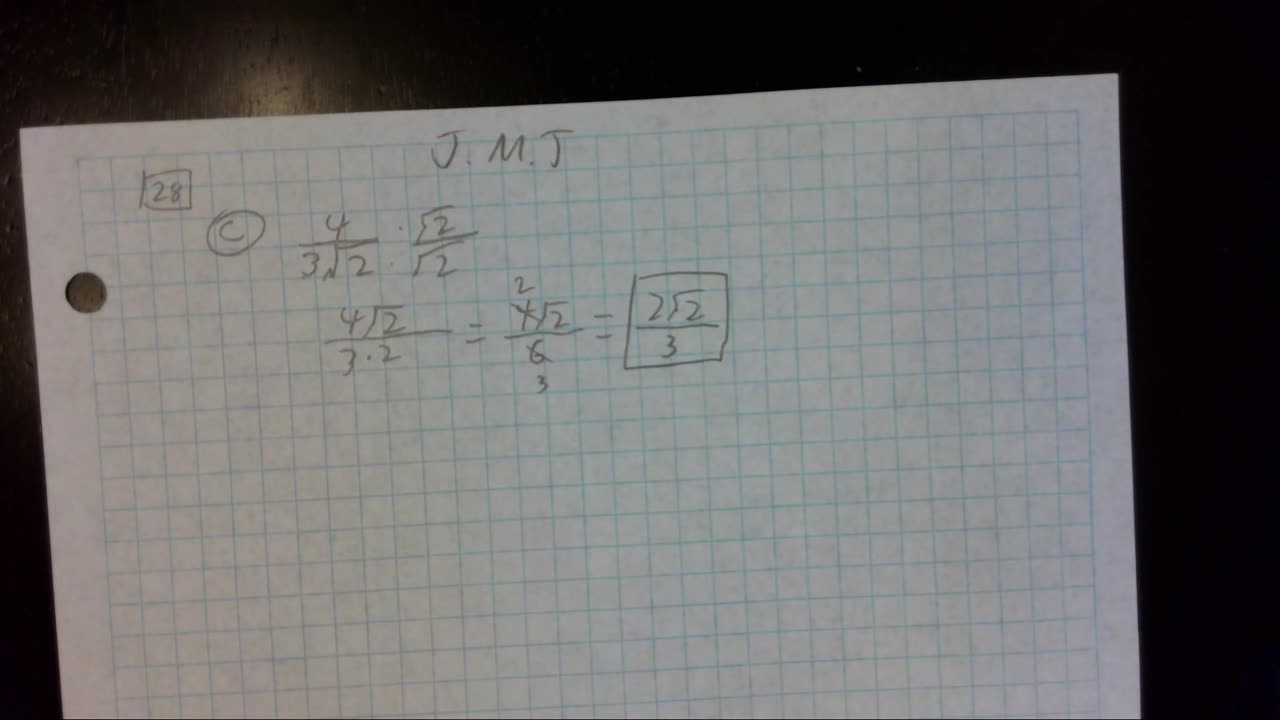 J.M.J
28
C 4/3√2 · √2/√2
4√2/3·2 = 2 4√2/6 3 = 2√2/3